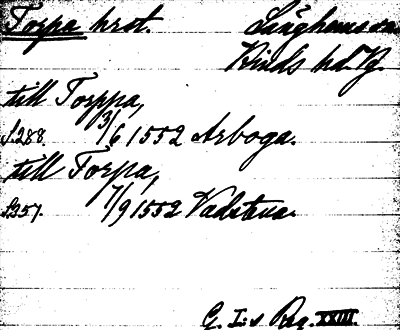 Torpa hrst. Länghems sn.
Kinds hd. Vg.
till Torppa,
s.288. 3/6 1552 Arboga.
till Torpa,
s.357. 7/9 1552 Vadstena.
G. I:s Reg. XXIII.